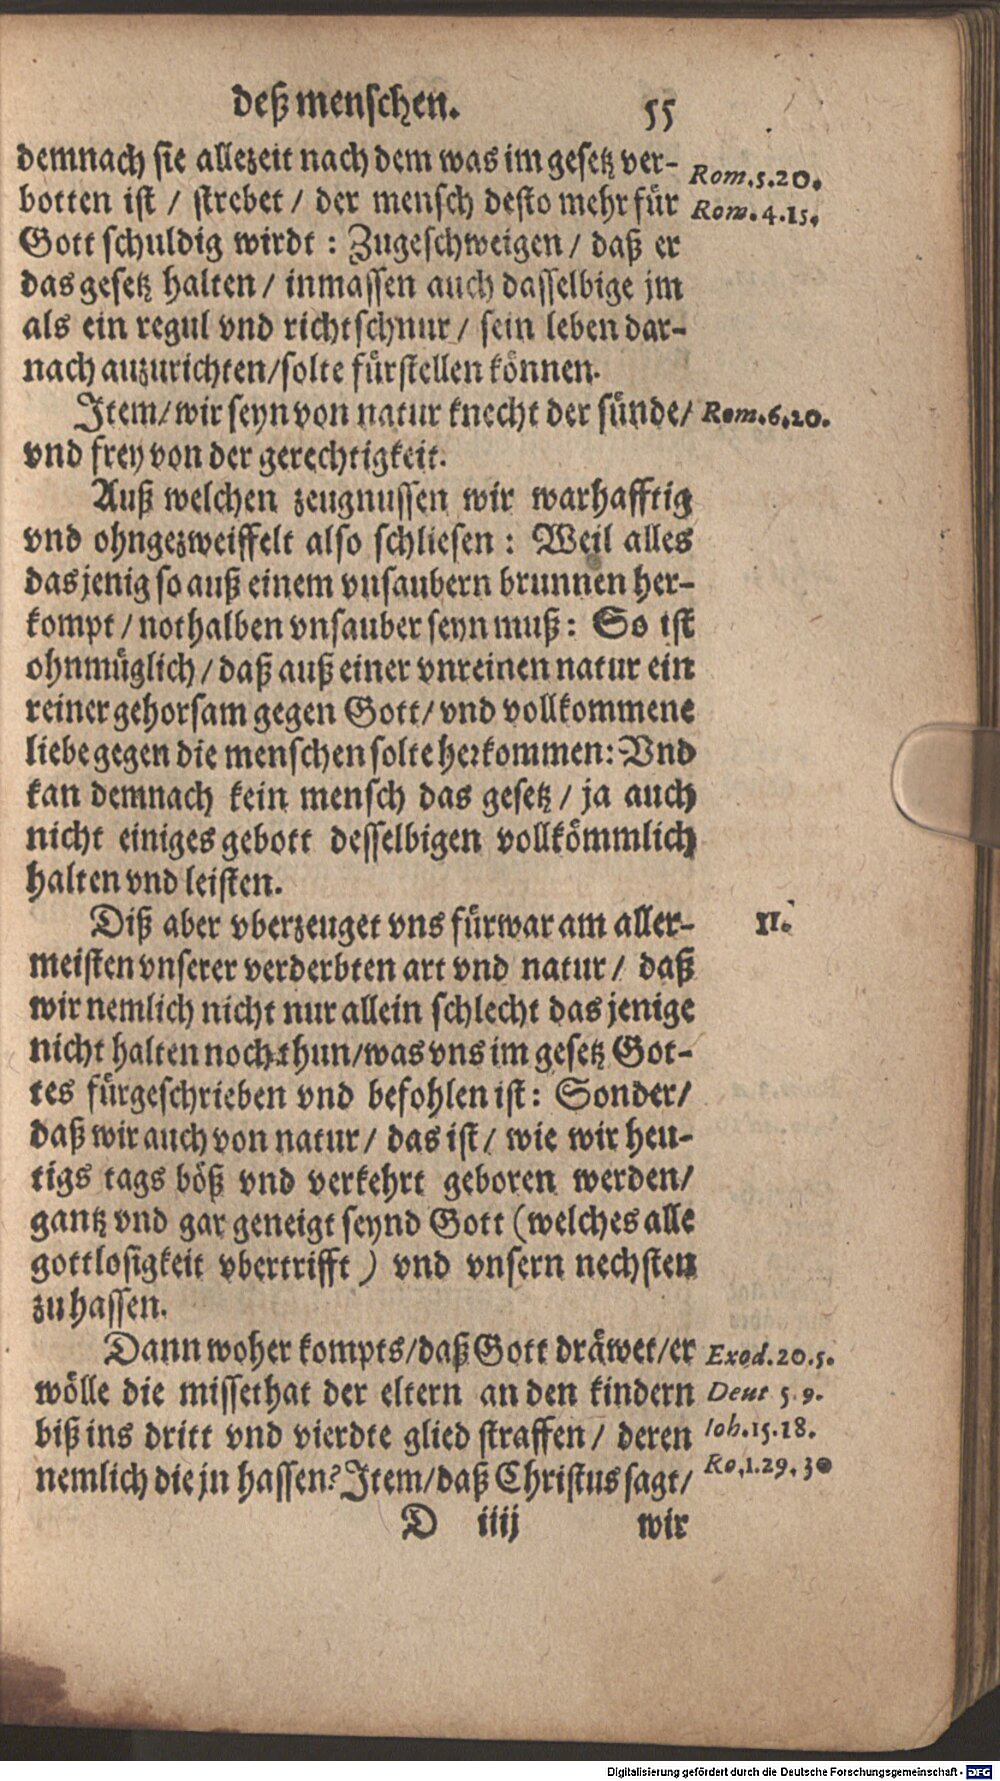 deß menschen. 55
demnach sie allezeit nach dem was im gesetz ver- Rom.5.20.
botten ist / strebet / der mensch desto mehr für Rom.4.15.
Gott schuldig wirdt : Zugeschweigen / daß er
das gesetz halten / inmassen auch dasselbige jm
als ein regul vnd richtschnur / sein leben dar-
nach auzurichten/solte fürstellen können.
Item/wir seyn von natur knecht der sünde/ Rom.6.20.
vnd frey von der gerechtigkeit.
Auß welchen zeugnussen wir warhafftig
vnd ohngezweiffelt also schliesen : Weil alles
das jenig so auß einem vnsaubern brunnen her-
kompt / nothalben vnsauber seyn muß : So ist
ohnmüglich / daß auß einer vnreinen natur ein
reiner gehorsam gegen Gott/ vnd vollkommene
liebe gegen die menschen solte herkommen: Vnd
kan demnach kein mensch das gesetz / ja auch
nicht einiges gebott desselbigen vollkömmlich
halten vnd leisten.
Diß aber vberzeuget vns fürwar am aller- II.
meisten vnserer verderbten art vnd natur / daß
wir nemlich nicht nur allein schlecht das jenige
nicht halten noch thun/was vns im gesetz Got-
tes fürgeschrieben vnd befohlen ist : Sonder/
daß wir auch von natur / das ist / wie wir heu-
tigs tags böß vnd verkehrt geboren werden/
gantz vnd gar geneigt seynd Gott (welches alle
gottlosigkeit vbertrifft ) vnd vnsern nechsten
zu hassen.
Dann woher kompts/daß Gott dräwet/er Exod.20.5.
wölle die missethat der eltern an den kindern Deut 5.9.
biß ins dritt vnd vierdte glied straffen / deren Ioh.15.18.
nemlich die jn hassen? Item/daß Christus sagt/ Ro.1.29.30
D iiij wir
Digitalisierung gefördert durch die Deutsche Forschungsgemeinschaft - DFG